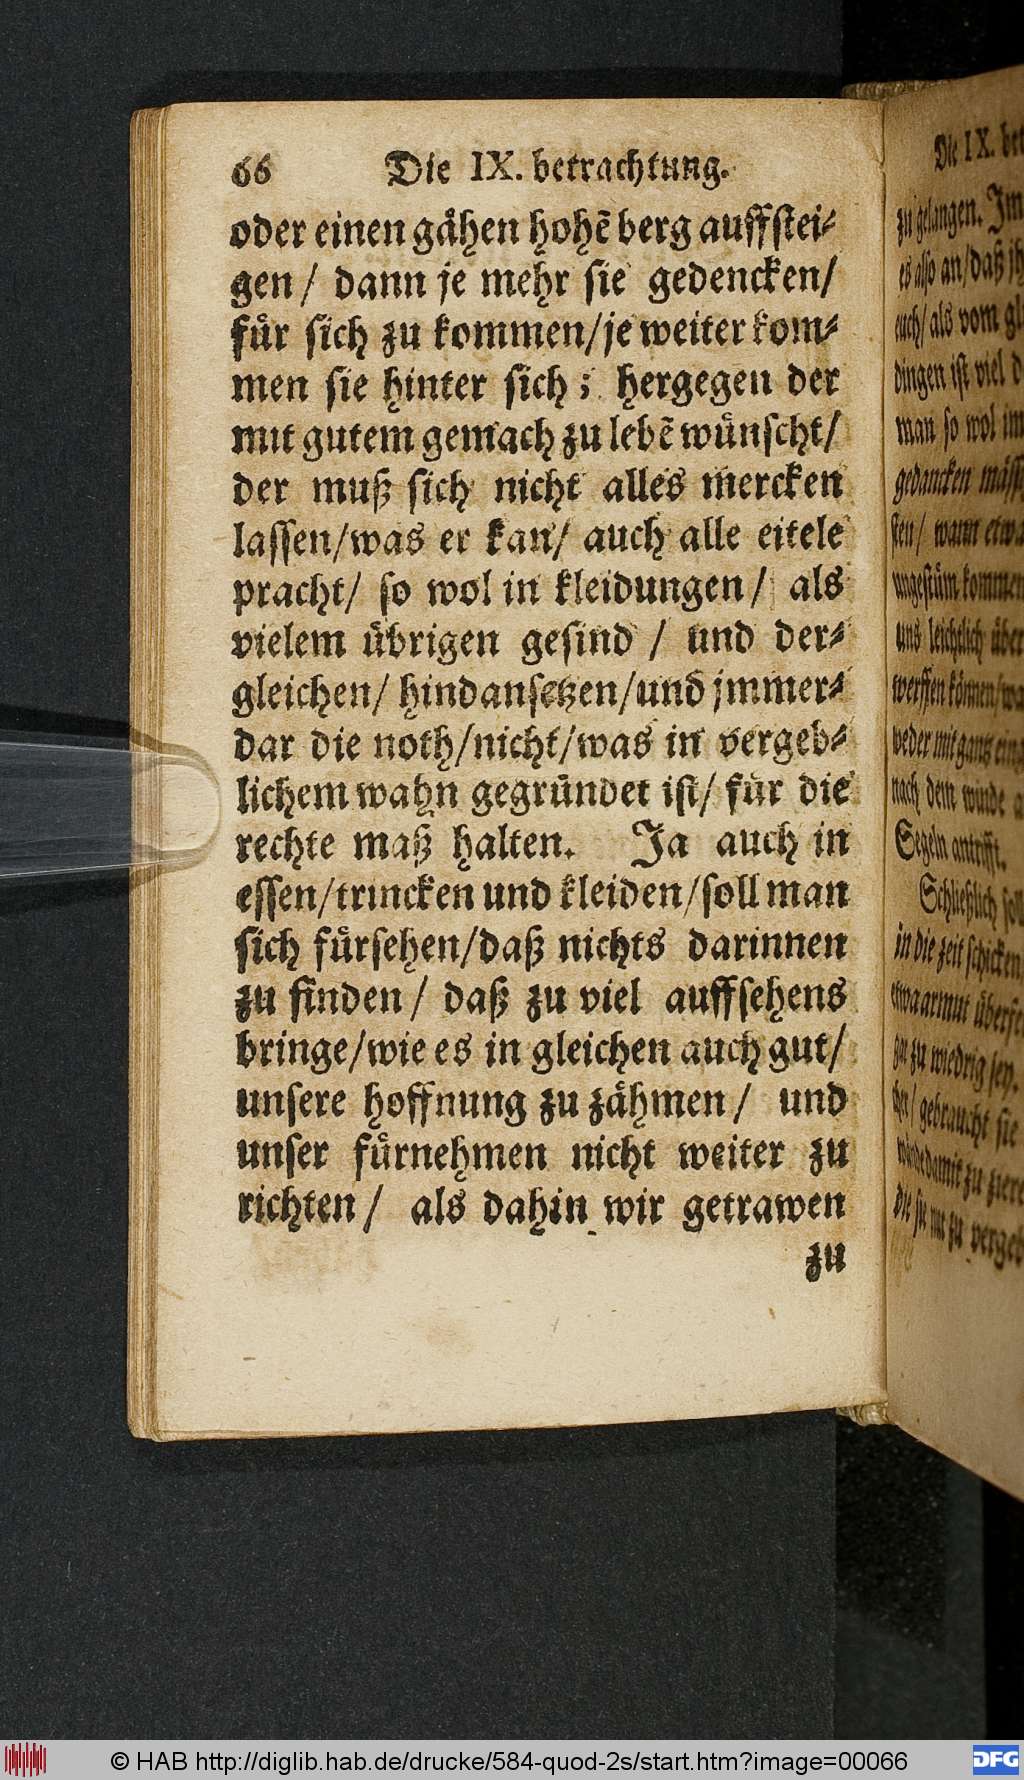 66 Die IX. betrachtung.
oder einen gåhen hohẽ berg auffstei⸗
gen / dann je mehr sie gedencken/
fůr sich zu kommen/je weiter kom⸗
men sie hinter sich; hergegen der
mit gutem gemach zu lebẽ wůnscht/
der muß sich nicht alles mercken
lassen/was er kan/ auch alle eitele
pracht/ so wol in kleidungen/ als
vielem ůbrigen gesind / und der⸗
gleichen/ hindansetzen/und jmmer⸗
dar die noth/nicht/was in vergeb⸗
lichem wahn gegründet ist/ fůr die
rechte maß halten. Ja auch in
essen/trincken und kleiden/soll man
sich fůrsehen/daß nichts darinnen
zu finden/ daß zu viel auffsehens
bringe/wie es in gleichen auch gut/
unsere hoffnung zu zåhmen/ und
unser fůrnehmen nicht weiter zu
richten/ als dahin wir getrawen
zu
Die IX.
zu gelangen. Im
es also an/daß
euch/ als vom
dingen ist viel
man so wol im
gedancken
sten/ wann
ungestům kommen
uns leichtlich
werffen kőnnen
weder mit gantz
nach dem winde
Segeln antrifft.
Schließlich soll
in die zeit schicken
etwa armut
gar zu wiedrig sey.
gebraucht sie
damit zu
die sie nur zu
© HAB http://diglib.hab.de/drucke/584-quod-2s/start.htm?image=00066
DFG